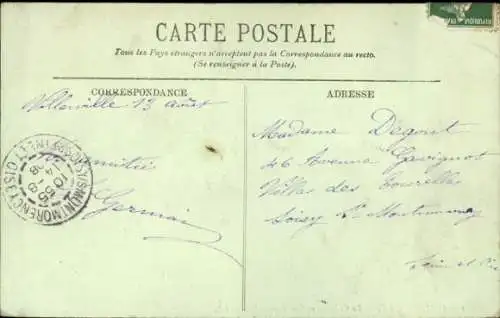 CARTE POSTALE
Tous les Pays étrangers n'acceptent pas la Correspondance au recto.
(Se renseigner à la Poste).
CORRESPONDANCE
ADRESSE
Villerville 13 août
amitié
Germain
Madame Degout
46 Avenue
Villas des Tourelles
Soisy s/s Montmorency
Seine et Oise